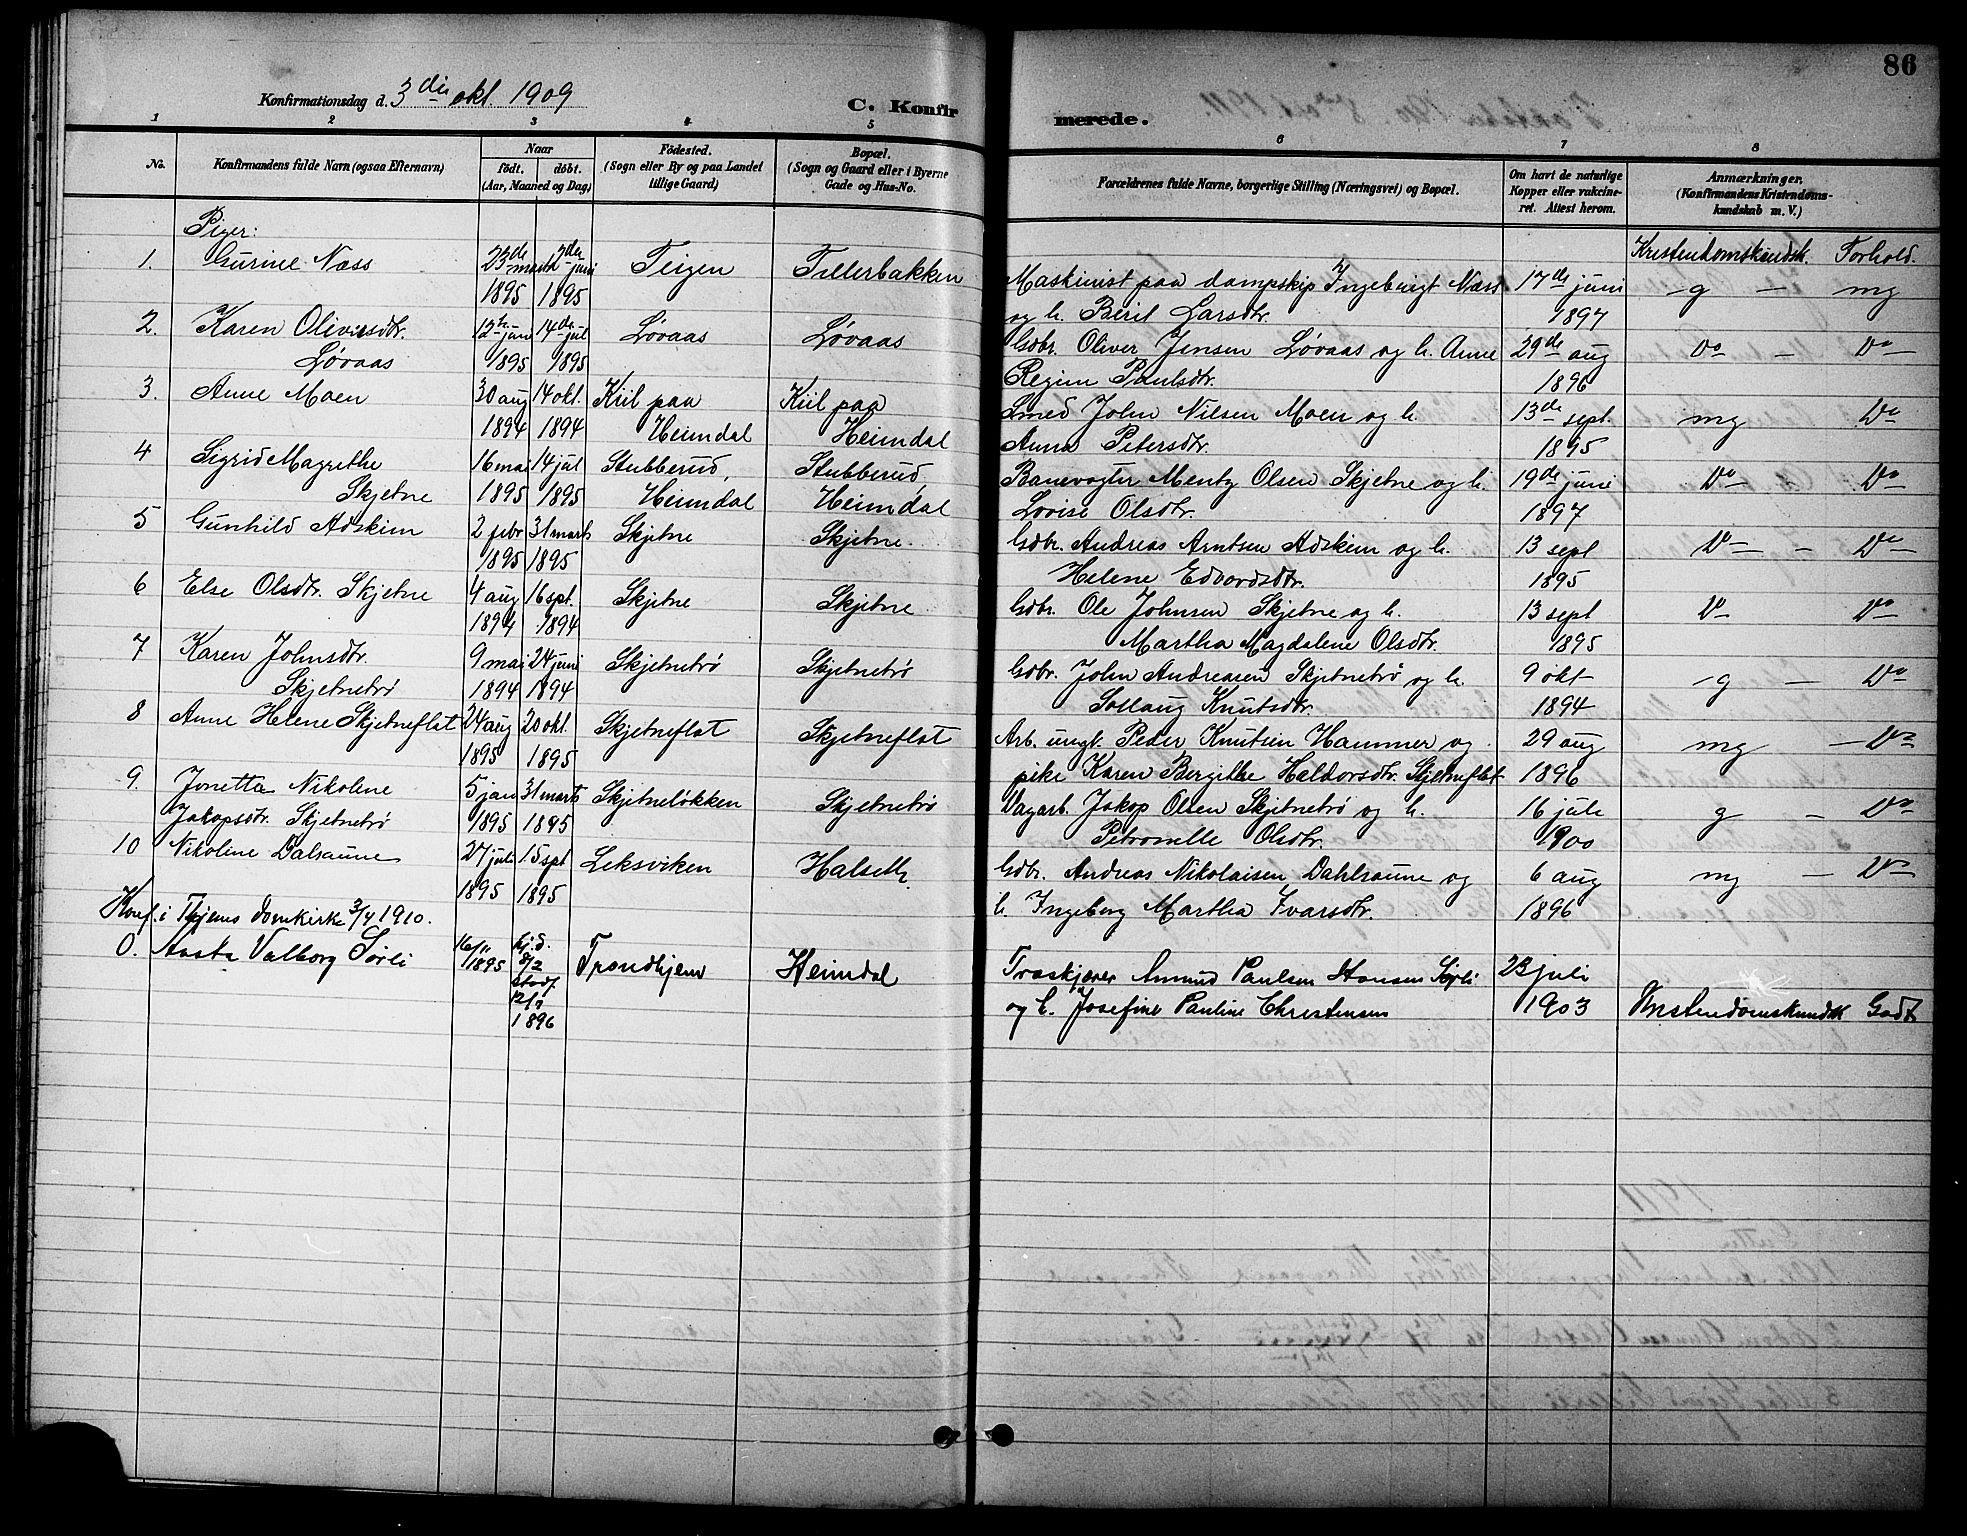 86
Konfirmationsdag d. 3die okt. 1909
C. Konfirmerede.
1 2 3 4 5 6 7 8
No.
Konfirmandens fulde Navn (ogsaa Efternavn)
Naar
födt. döbt.
(Aar, Maaned og Dag)
Födested.
(Sogn eller By og paa Landet
tillige Gaard)
Bopæl.
(Sogn og Gaard eller i Byerne
Gade og Hus-No.
Forældrenes fulde Navne, borgerlige Stilling (Næringsvei) og Bopæl.
Om havt de naturlige
Kopper eller vakcine-
ret. Attest herom.
Anmærkninger,
(Konfirmandens Kristendoms-
kundskab m. V.)
Piger:
Kristendomskundsk. Forhold.
1. Gurine Næss 23de marts 2den juni Teigen Tillerbakken Maskinist paa dampskip Ingebrigt Næss 17de juni - g - mg
1895 1895 og h. Berit Larsdtr. 1897
2. Karen Oliversdtr. 12te juni 14de jul Løvaas Løvaas Gdbr. Oliver Jensen Løvaas og h. Anne 29de aug Do - Do
Løvaas 1895 1895 Regine Paulsdtr. 1896
3. Anne Moen 30 aug 14 okt. Kiil paa Kiil paa Smed John Nilsen Moen og h. 13de sept. mg Do
1894 1894 Heimdal Heimdal Anna Petersdtr. 1895
4 Sigrid Magrethe 16 mai 14 jul Stubberud, Stubberud, Banevogter Mentz Olsen Skjetne og h. 19de juni Do Do
Skjetne 1895 1895 Heimdal Heimdal Lovise Olsdtr. 1897
5 Gunhild Adskim 2 febr 31 marts Skjetne Skjetne. Gdbr. Andreas Arntsen Adskim og h. 13 sept Do - Do
1895 1895 Helene Edvardsdtr. 1895
6 Else Olsdtr. Skjetne 4 aug 16 spt. Skjetne Skjetne Gdbr. Ole Johnsen Skjetne og h. 13 sept D Do
1894 1894 Martha Magdalene Olsdtr. 1895
7 Karen Johnsdtr. 9 mai 24 juni Skjetnetrø Skjetnetrø Gdbr. John Andreasen Skjetnetrø og h. 9 okt - g - Do
Skjetnetrø 1894 1894 Sollaug Knutsdtr. 1894
8 Anne Helene Skjetneflat 24 aug 20 okt. Skjetneflat Skjetneflat Arb. ungk. Peder Knutsen Hammer og 29 aug mg - Do
1895 1895 pike Karen Bergithe Haldorsdtr. Skjetneflat 1896
9. Jonetta Nikoline 5 jan 31 marts Skjetneløkken Skjetnetrø Dagarb. Jakop Olsen Skjetnetrø og h. 16 juli g - Do
Jakopsdtr. Skjetnetrø 1895 1895 Petronelle Olsdtr. 1900
10 Nikoline Dalsaune 27 juli 15 spt Leksviken Halseth Gdbr. Andreas Nikolaisen Dahlsaune og 6 aug mg - Do
1895 1895 h. Ingeborg Martha Ivarsdtr. 1896
Konf. i Thjems Domkirke 3/4 1910.
0. Aasta Valborg Sørli 16/11 1895 hj.d. 8/2 stadf 12/7 1896 Trondhjem Heimdal Træskjærer Amund Paulsen Hansen Sørli 23 juli
og h. Josefine Pauline Christensen 1903 Kristendomskundsk Godt